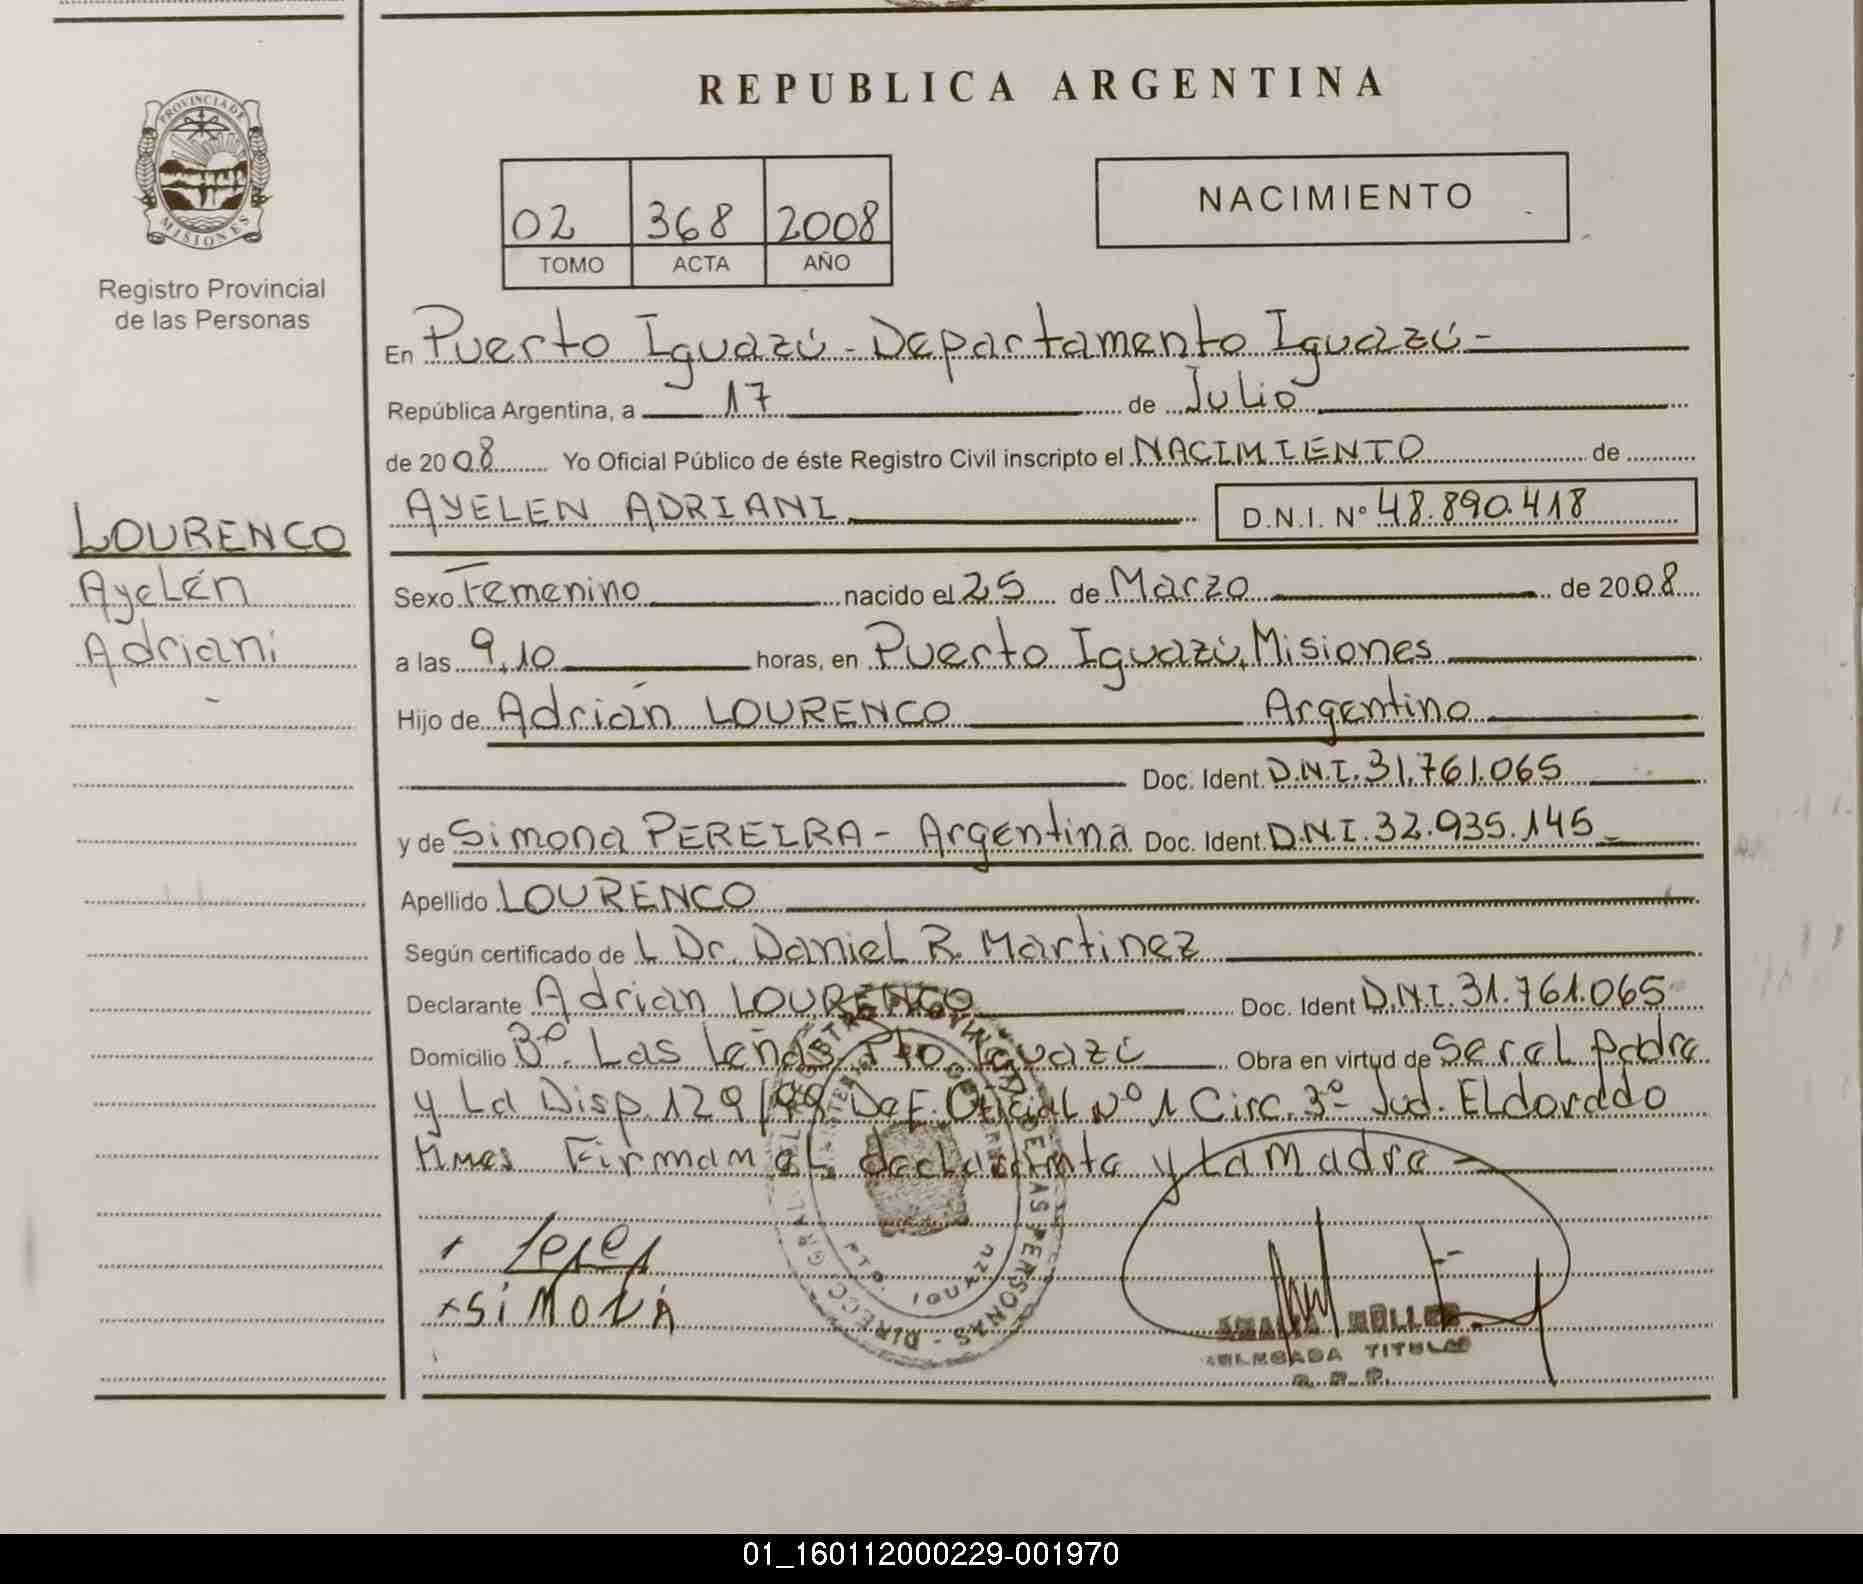 REPUBLICA ARGENTINA
PROVINCIA DE
MISIONES
Registro Provincial
de las Personas
02 368 2008
TOMO ACTA AÑO
NACIMIENTO
En Puerto Iguazú - Departamento Iguazú -
República Argentina, a 17 de Julio
de 2008 Yo Oficial Público de éste Registro Civil inscripto el NACIMIENTO de
AYELEN ADRIANI D.N.I. Nº 48.890.418
LOURENCO
Ayelén
Adriani
Sexo Femenino nacido el 25 de Marzo de 2008
a las 9,10 horas, en Puerto Iguazú, Misiones
Hijo de Adrián LOURENCO Argentino
Doc. Ident. D.N.I. 31.761.065
y de Simona PEREIRA - Argentina Doc. Ident. D.N.I. 32.935.145
Apellido LOURENCO
Según certificado de L Dr. Daniel R. Martinez
Declarante Adrian LOURENCO Doc. Ident D.N.I. 31.761.065
Domicilio 3º. Las Leñas, Pto. Iguazú Obra en virtud de Ser el padre
y La Disp. 129/99 Def. Oficial Nº 1 Circ. 3º Jud. Eldorado
Mnes Firman el declarante y La Madre
SiMONA
DE LAS PERSONAS - DIRECC. GRAL.
PTO. IGUAZU
MÜLLER
DELEGADA TITULAR
R. P. P.
01_160112000229-001970